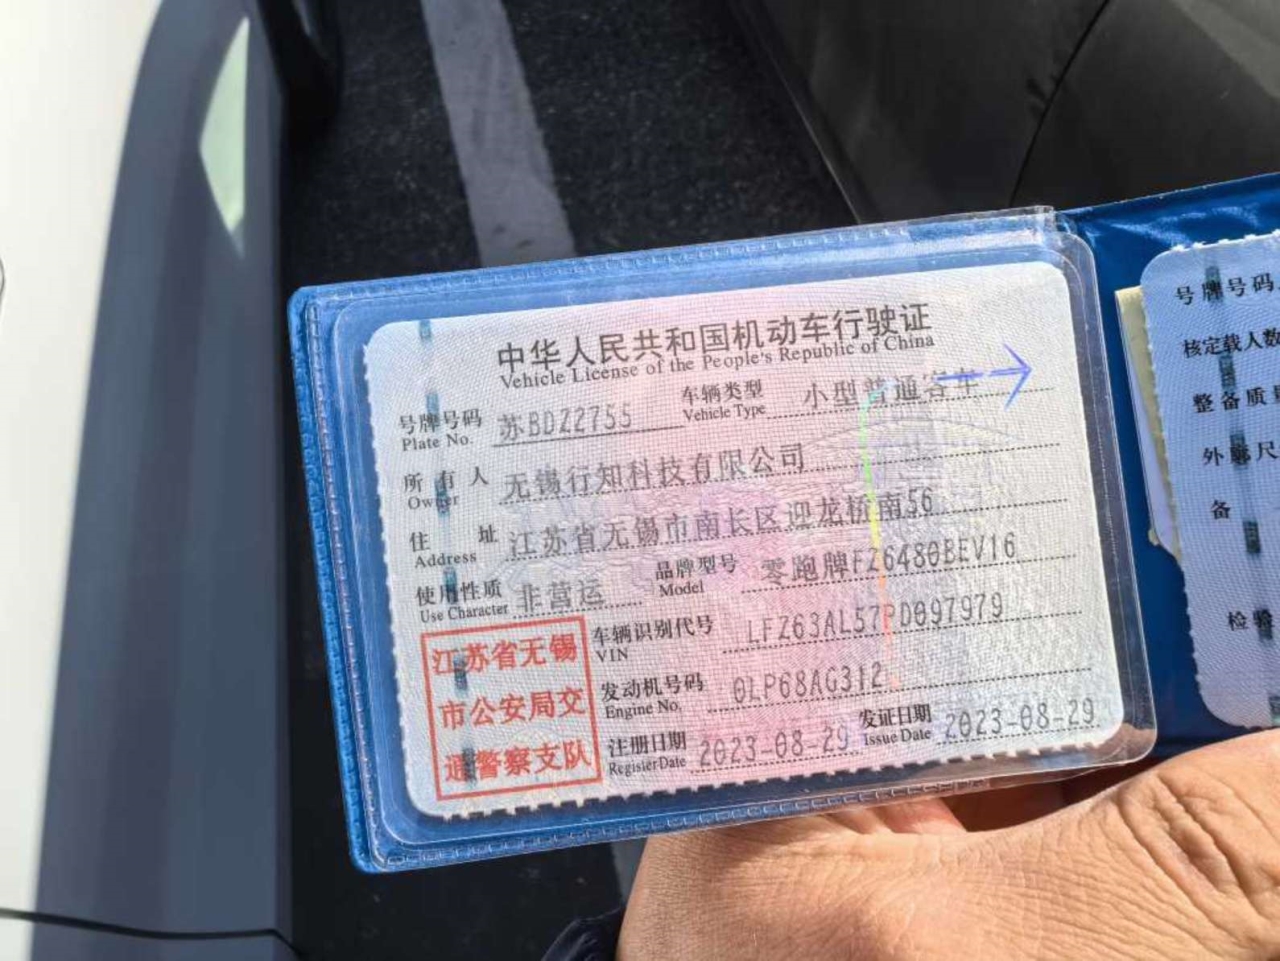 中华人民共和国机动车行驶证
Vehicle License of the People's Republic of China
号牌号码 苏BDZ2755 车辆类型 小型普通客车
Plate No. Vehicle Type
所有人 无锡行知科技有限公司
Owner
住址 江苏省无锡市南长区迎龙桥南56
Address
使用性质 非营运 品牌型号 零跑牌FZ6480BEV16
Use Character Model
车辆识别代号 LFZ63AL57PD097979
VIN
发动机号码 0LP68AG312
Engine No.
注册日期 2023-08-29 发证日期 2023-08-29
Register Date Issue Date
江苏省无锡
市公安局交
通警察支队
号牌号码
核定载人数
整备质量
外廓尺
备
检验